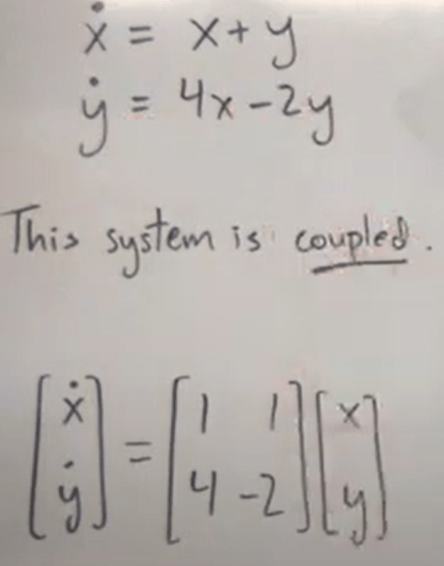 ẋ = x + y
ẏ = 4x - 2y
This system is coupled.
[ẋ ẏ] = [1 1 4 -2] [x y]